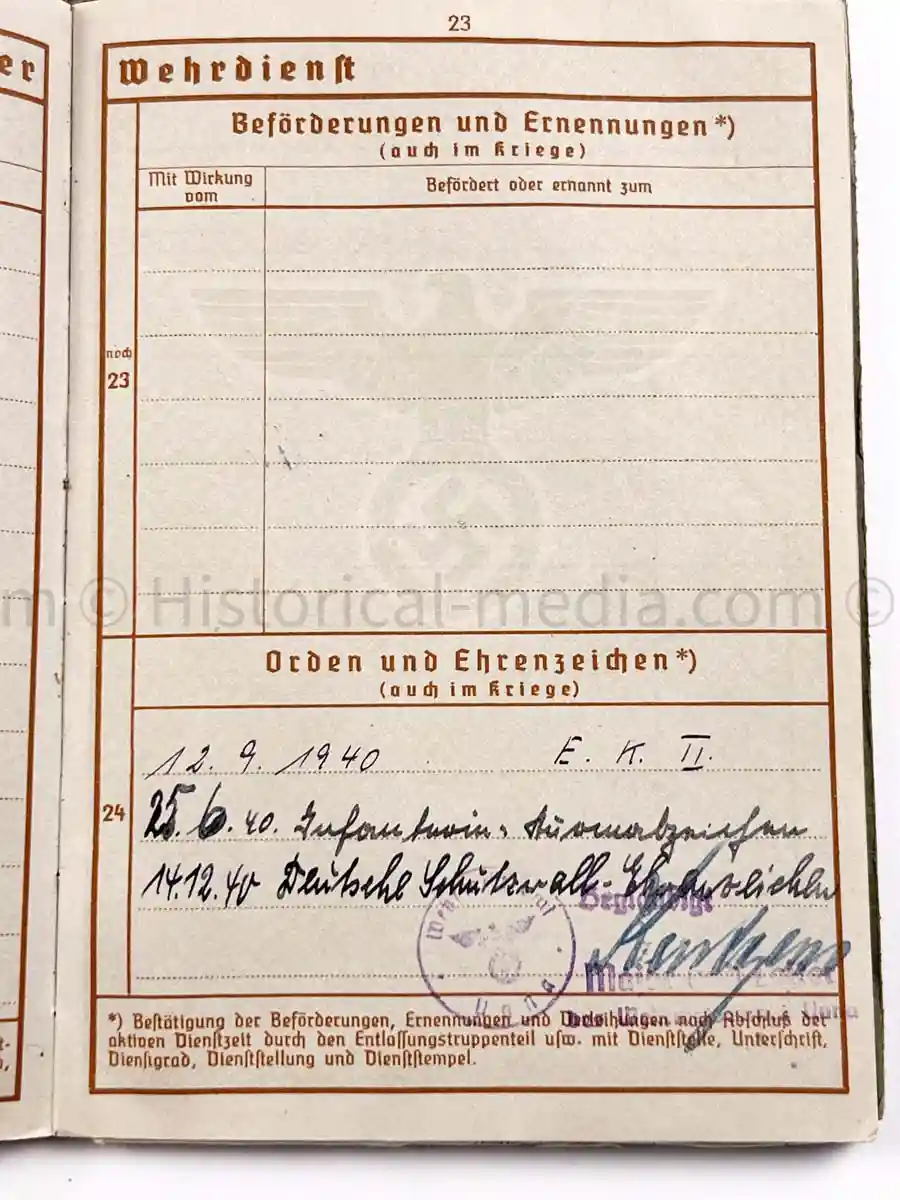 23
er
Wehrdienst
Beförderungen und Ernennungen*)
(auch im Kriege)
Mit Wirkung vom
Befördert oder ernannt zum
noch
23
m © Historical-media.com ©
Orden und Ehrenzeichen*)
(auch im Kriege)
24
12. 9. 1940 E. K. II.
25. 6. 40. Infanterie-Sturmabzeichen
14.12.40 Deutsche Schutzwall-Ehrenzeichen
Beglaubigt
Major
Unna
Unna
*) Bestätigung der Beförderungen, Ernennungen und Verleihungen nach Abschluß der
aktiven Dienstzeit durch den Entlassungstruppenteil usw. mit Dienststelle, Unterschrift,
Dienstgrad, Dienststellung und Dienststempel.